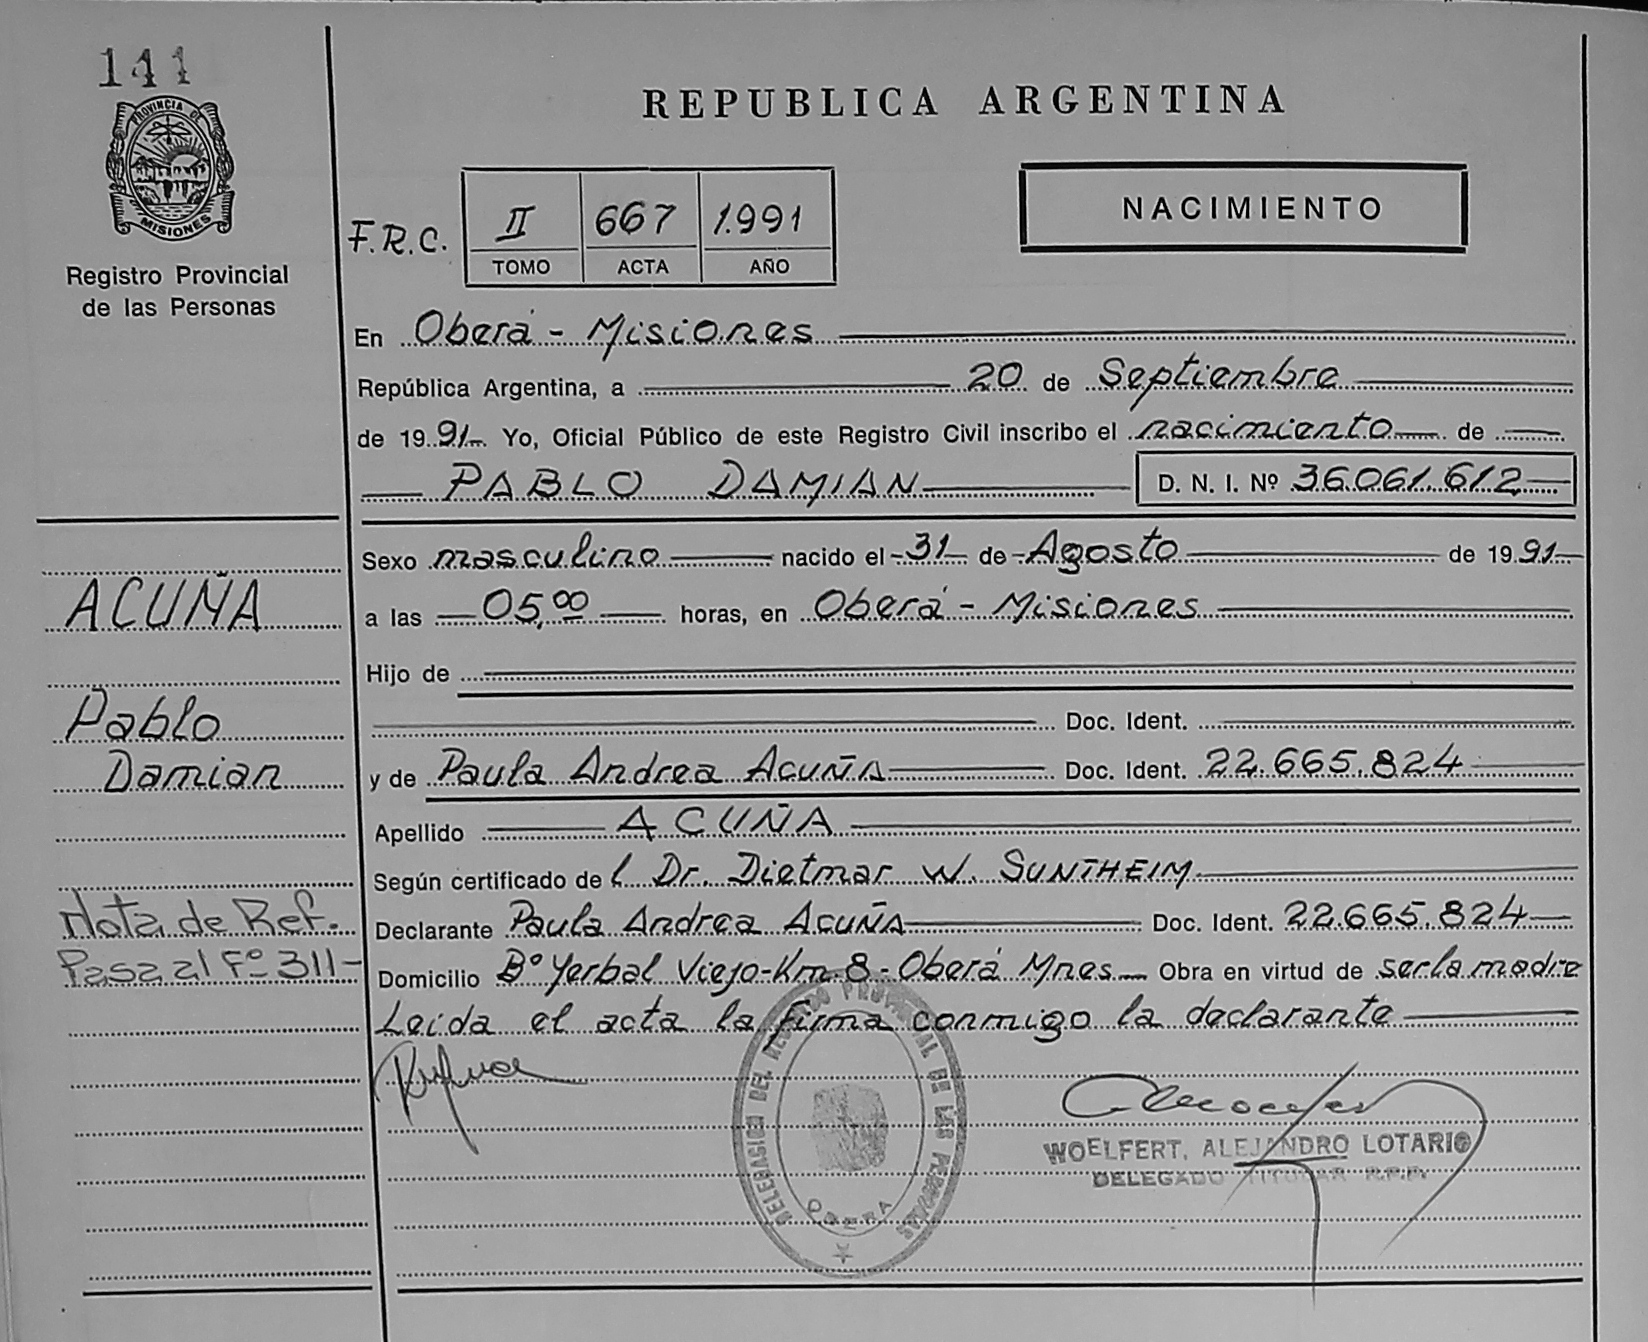 141
PROVINCIA DE
MISIONES
Registro Provincial
de las Personas
ACUÑA
Pablo
Damian
Nota de Ref.
Pasa al Fº 311-
REPUBLICA ARGENTINA
NACIMIENTO
F.R.C.
II 667 1.991
TOMO ACTA AÑO
En Oberá - Misiones
República Argentina, a 20 de Septiembre
de 1991 Yo, Oficial Público de este Registro Civil inscribo el nacimiento de
PABLO DAMIAN D. N. I. Nº 36.061.612
Sexo masculino nacido el 31 de Agosto de 1991
a las 05,00 horas, en Oberá - Misiones
Hijo de
Doc. Ident.
y de Paula Andrea Acuña Doc. Ident. 22.665.824
Apellido ACUÑA
Según certificado del Dr. Dietmar W. SUNTHEIM
Declarante Paula Andrea Acuña Doc. Ident. 22.665.824
Domicilio Bº Yerbal Viejo-Km. 8 - Oberá Mnes Obra en virtud de ser la madre
Leida el acta la firma conmigo la declarante
DELEGACION DEL REGISTRO PROVINCIAL DE LAS PERSONAS
OBERA
WOELFERT, ALEJANDRO LOTARIO
DELEGADO TITULAR R.P.P.